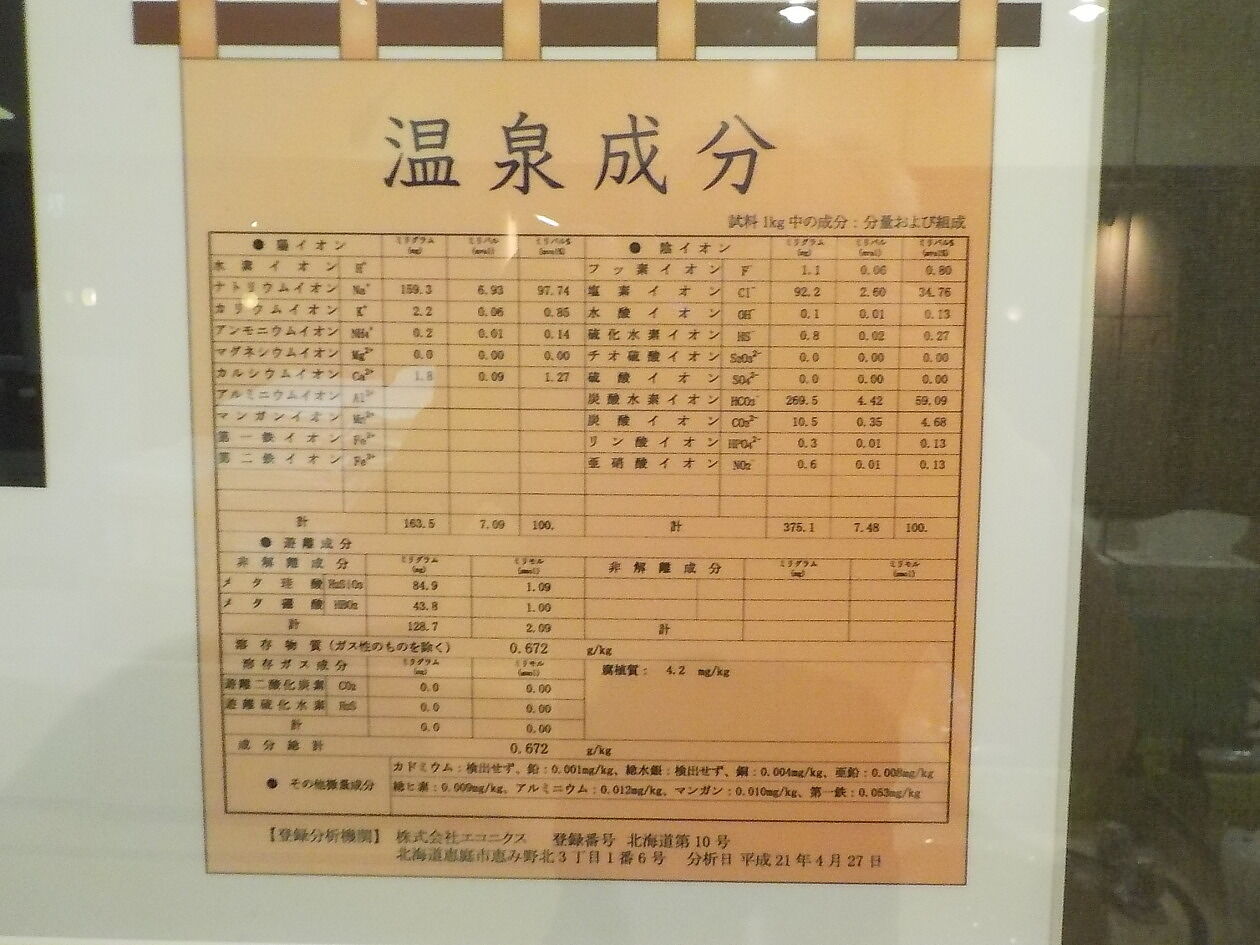 温泉成分
試料1kg中の成分：分量および組成
● 陽イオン ミリグラム(mg) ミリバル(mval) ミリバル%(mval%) ● 陰イオン ミリグラム(mg) ミリバル(mval) ミリバル%(mval%)
水素イオン H⁺ フッ素イオン F⁻ 1.1 0.06 0.80
ナトリウムイオン Na⁺ 159.3 6.93 97.74 塩素イオン Cl⁻ 92.2 2.60 34.76
カリウムイオン K⁺ 2.2 0.06 0.85 水酸イオン OH⁻ 0.1 0.01 0.13
アンモニウムイオン NH₄⁺ 0.2 0.01 0.14 硫化水素イオン HS⁻ 0.8 0.02 0.27
マグネシウムイオン Mg²⁺ 0.0 0.00 0.00 チオ硫酸イオン S₂O₃²⁻ 0.0 0.00 0.00
カルシウムイオン Ca²⁺ 1.8 0.09 1.27 硫酸イオン SO₄²⁻ 0.0 0.00 0.00
アルミニウムイオン Al³⁺ 炭酸水素イオン HCO₃⁻ 269.5 4.42 59.09
マンガンイオン Mn²⁺ 炭酸イオン CO₃²⁻ 10.5 0.35 4.68
第一鉄イオン Fe²⁺ リン酸イオン HPO₄²⁻ 0.3 0.01 0.13
第二鉄イオン Fe³⁺ 亜硝酸イオン NO₂⁻ 0.6 0.01 0.13
計 163.5 7.09 100. 計 375.1 7.48 100.
● 遊離成分
非解離成分 ミリグラム(mg) ミリモル(mmol) 非解離成分 ミリグラム(mg) ミリモル(mmol)
メタ珪酸 H₂SiO₃ 84.9 1.09
メタ硼酸 HBO₂ 43.8 1.00
計 128.7 2.09 計
溶存物質(ガス性のものを除く) 0.672 g/kg
溶存ガス成分 ミリグラム(mg) ミリモル(mmol) 腐植質： 4.2 mg/kg
遊離二酸化炭素 CO₂ 0.0 0.00
遊離硫化水素 H₂S 0.0 0.00
計 0.0 0.00
成分総計 0.672 g/kg
● その他微量成分 カドミウム：検出せず、鉛：0.001mg/kg、総水銀：検出せず、銅：0.004mg/kg、亜鉛：0.008mg/kg
総ヒ素：0.009mg/kg、アルミニウム：0.012mg/kg、マンガン：0.010mg/kg、第一鉄：0.053mg/kg
【登録分析機関】 株式会社エコニクス 登録番号 北海道第10号
北海道恵庭市恵み野北3丁目1番6号 分析日 平成21年4月27日